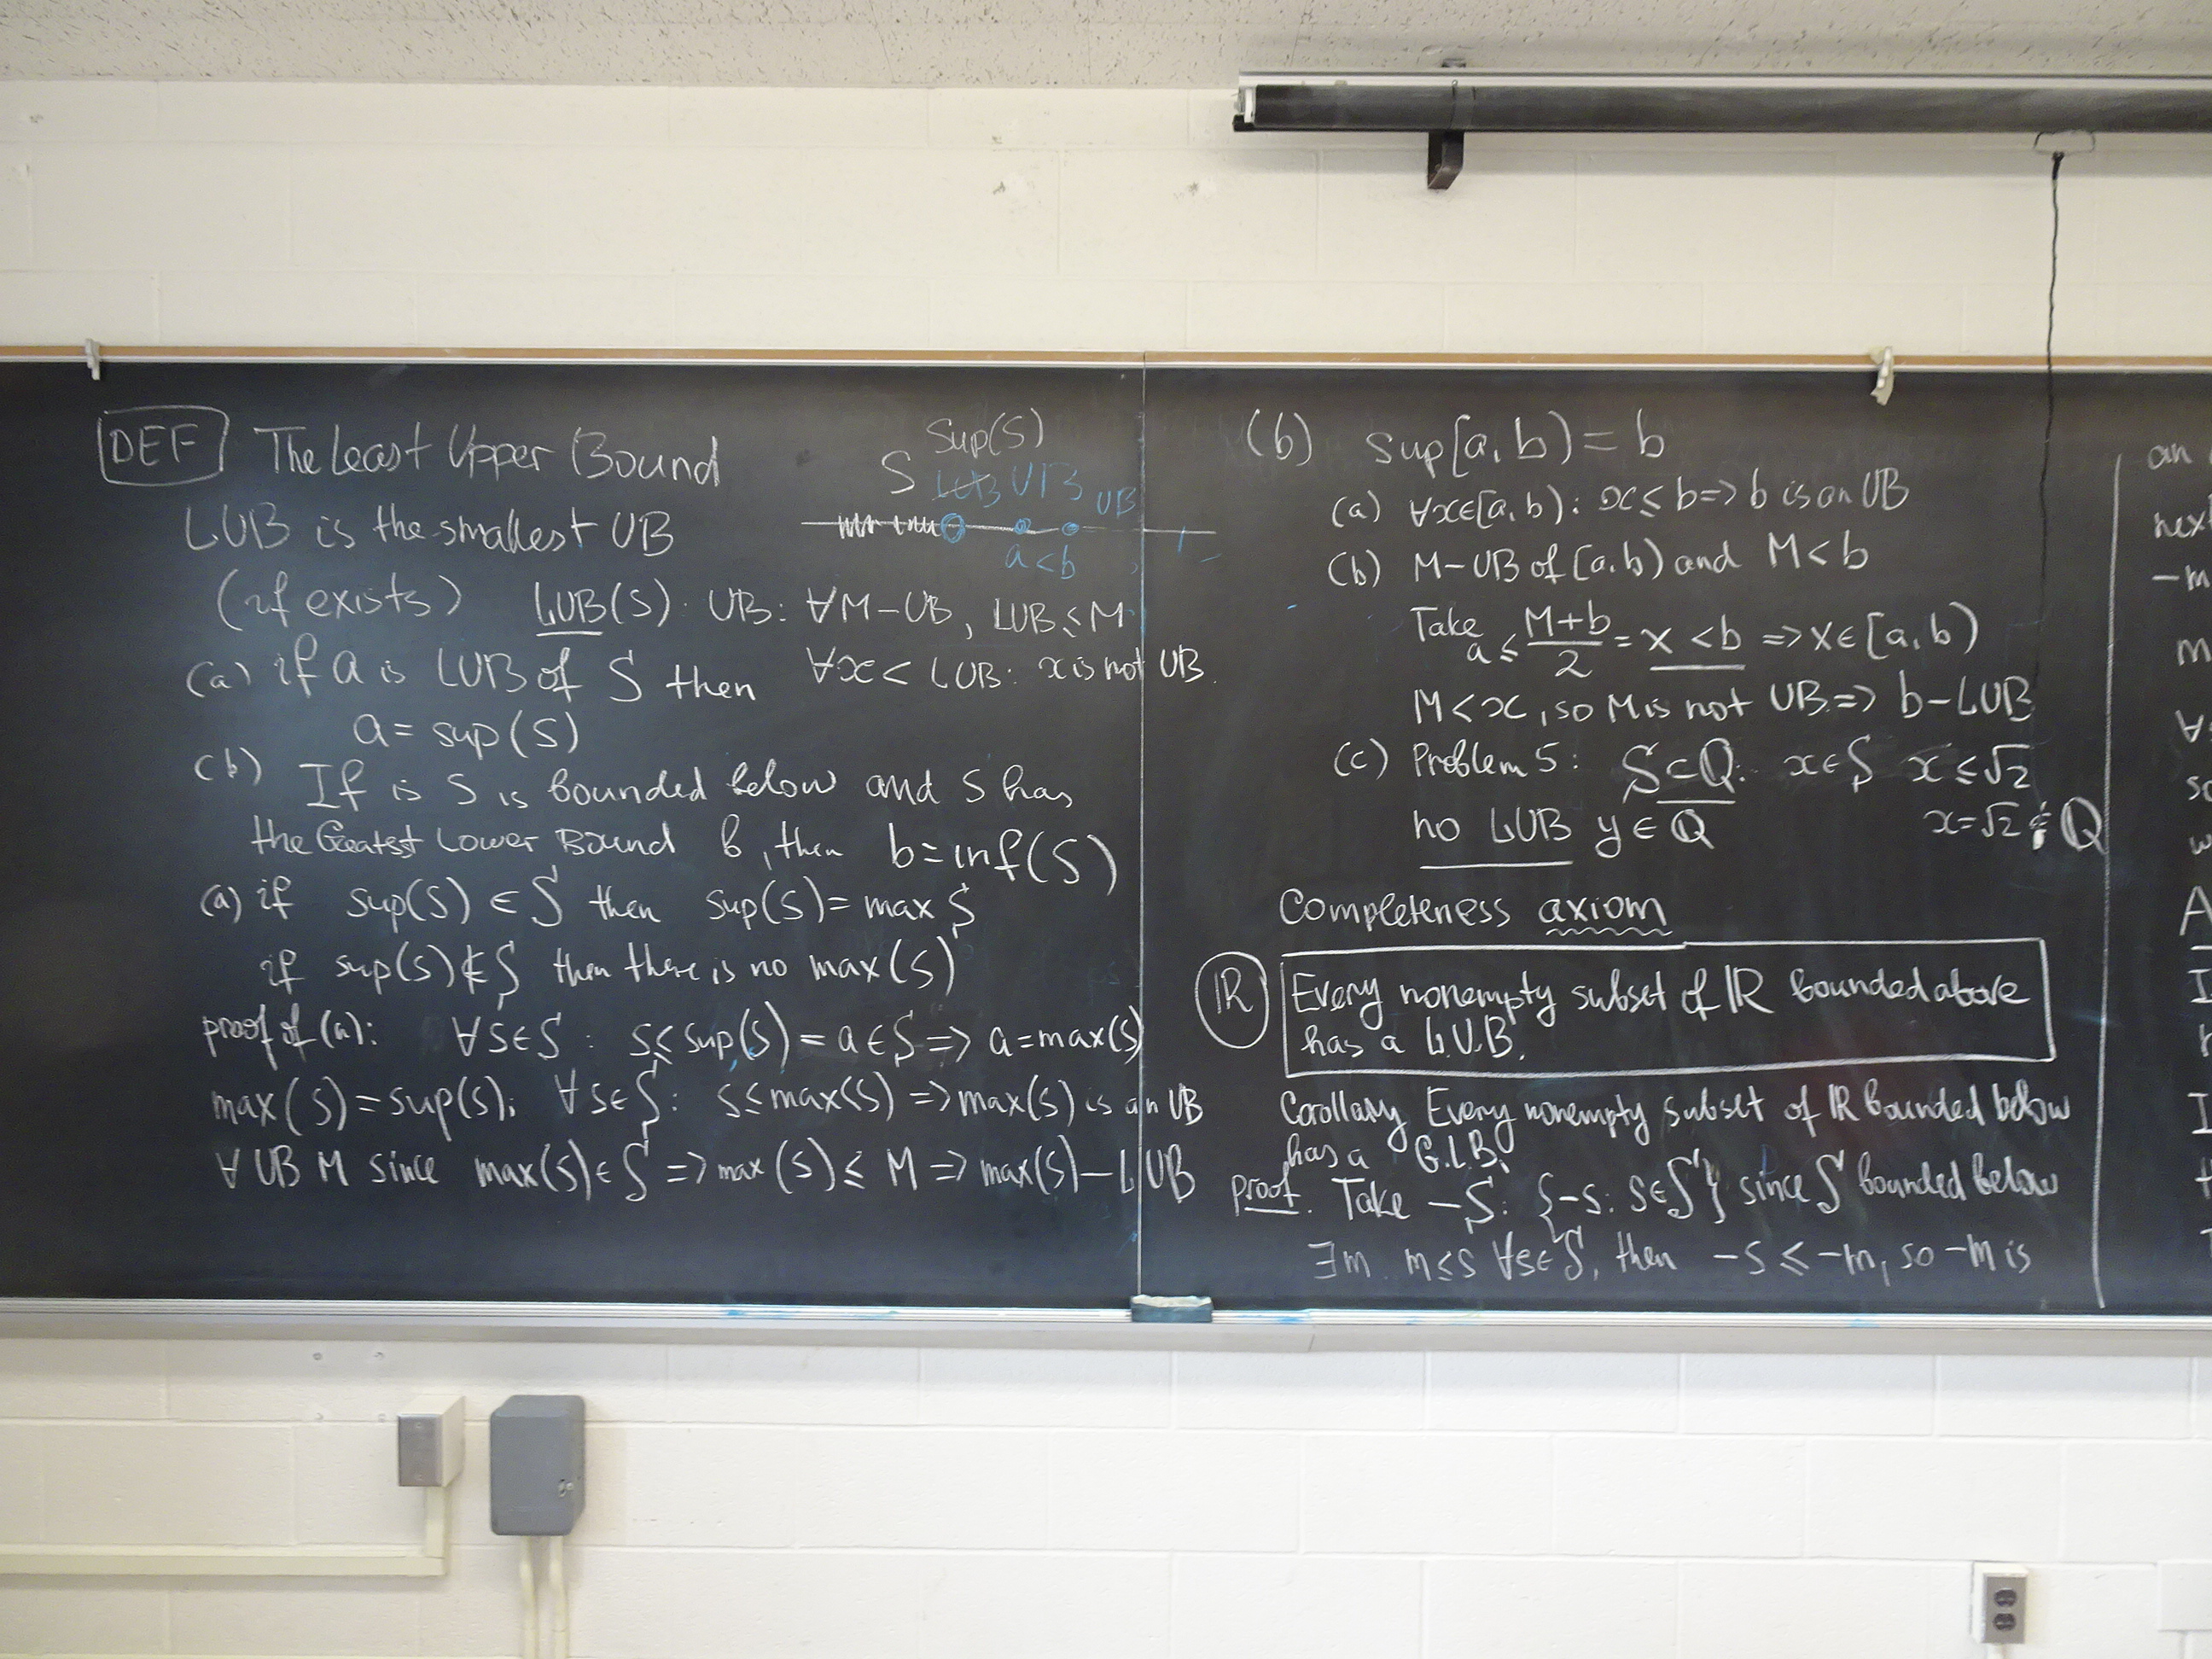 DEF The Least Upper Bound
LUB is the smallest UB
(if exists) LUB(S). UB: ∀M-UB, LUB≤M
∀x< LUB: x is not UB.
Sup(S)
S LUB UB UB
a<b
(a) if a is LUB of S then
a = sup(S)
(b) If is S is bounded below and S has
the Greatst Lower Bound b, then b=inf(S)
(a) if sup(S) ∈ S then sup(S)= max S
if sup(S)∉S then there is no max(S)
proof of (a): ∀s∈S : s≤sup(S) = a ∈ S => a=max(S)
max(S)=sup(S); ∀s∈S: s≤max(S) => max(S) is an UB
∀ UB M since max(S)∈S => max(S) ≤ M => max(S)-LUB
(b) sup[a,b)=b
(a) ∀x∈[a,b): x≤b=> b is an UB
(b) M-UB of [a,b) and M<b
Take a≤ (M+b)/2 = x <b => x∈[a,b)
M<x, so M is not UB.=> b-LUB
(c) Problem 5: S⊂Q: x∈S x≤√2
no LUB y∈Q x=√2∉Q
Completeness axiom
ℝ Every nonempty subset of ℝ bounded above
has a L.U.B.
Corollary Every nonempty subset of ℝ bounded below
has a G.L.B.
proof. Take -S: {-s: s∈S} since S bounded below
∃m. m≤s ∀s∈S, then -s ≤ -m, so -m is
an
-m